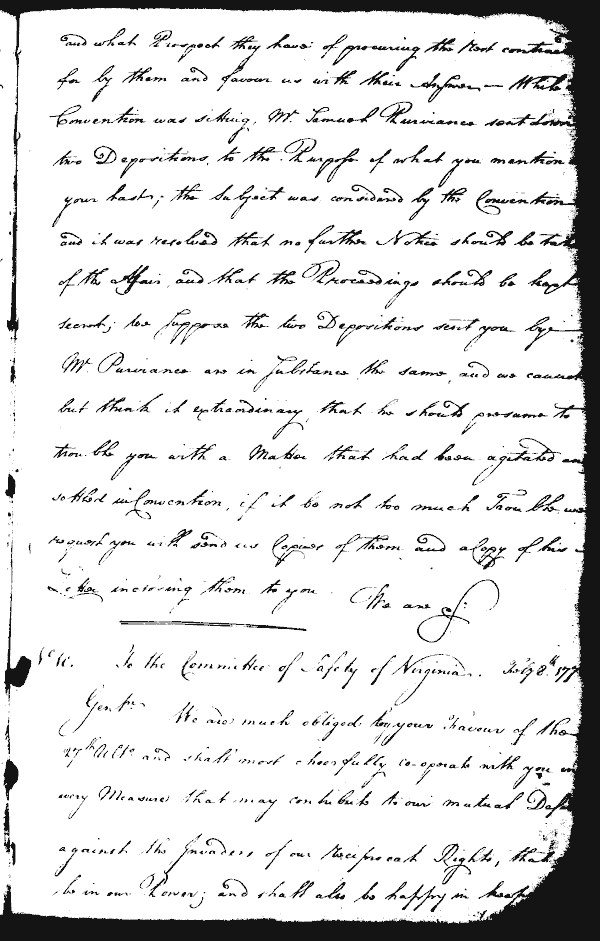 and what Prospect they have of procuring the rest contrac
for by them and favour us with their Answer — While
Convention was sitting, Mr. Samuel Purviance sent down
two Depositions, to the Purpose of what you mention
your last; the Subject was considered by the Convention
and it was resolved that no further Notice should be tak
of the Affair, and that the Proceedings should be kept
secret; we suppose the two Depositions sent you by
Mr. Purviance are in Substance the same, and we cannot
but think it extraordinary, that he should presume to
trouble you with a Matter that had been agitated and
settled in Convention, if it be not too much Trouble we
request you will send us Copies of them and a Copy of his
Letter inclosing them to you. We are &c:
To the Committee of Safety of Virginia. Feby 8th. 177
Gentn. We are much obliged by your Favour of the
27th Ulto. and shall most cheerfully co-operate with you in
every Measure that may contribute to our mutual Defe
against the Invaders of our reciprocal Rights, that
be in our Power; and shall also be happy in keep